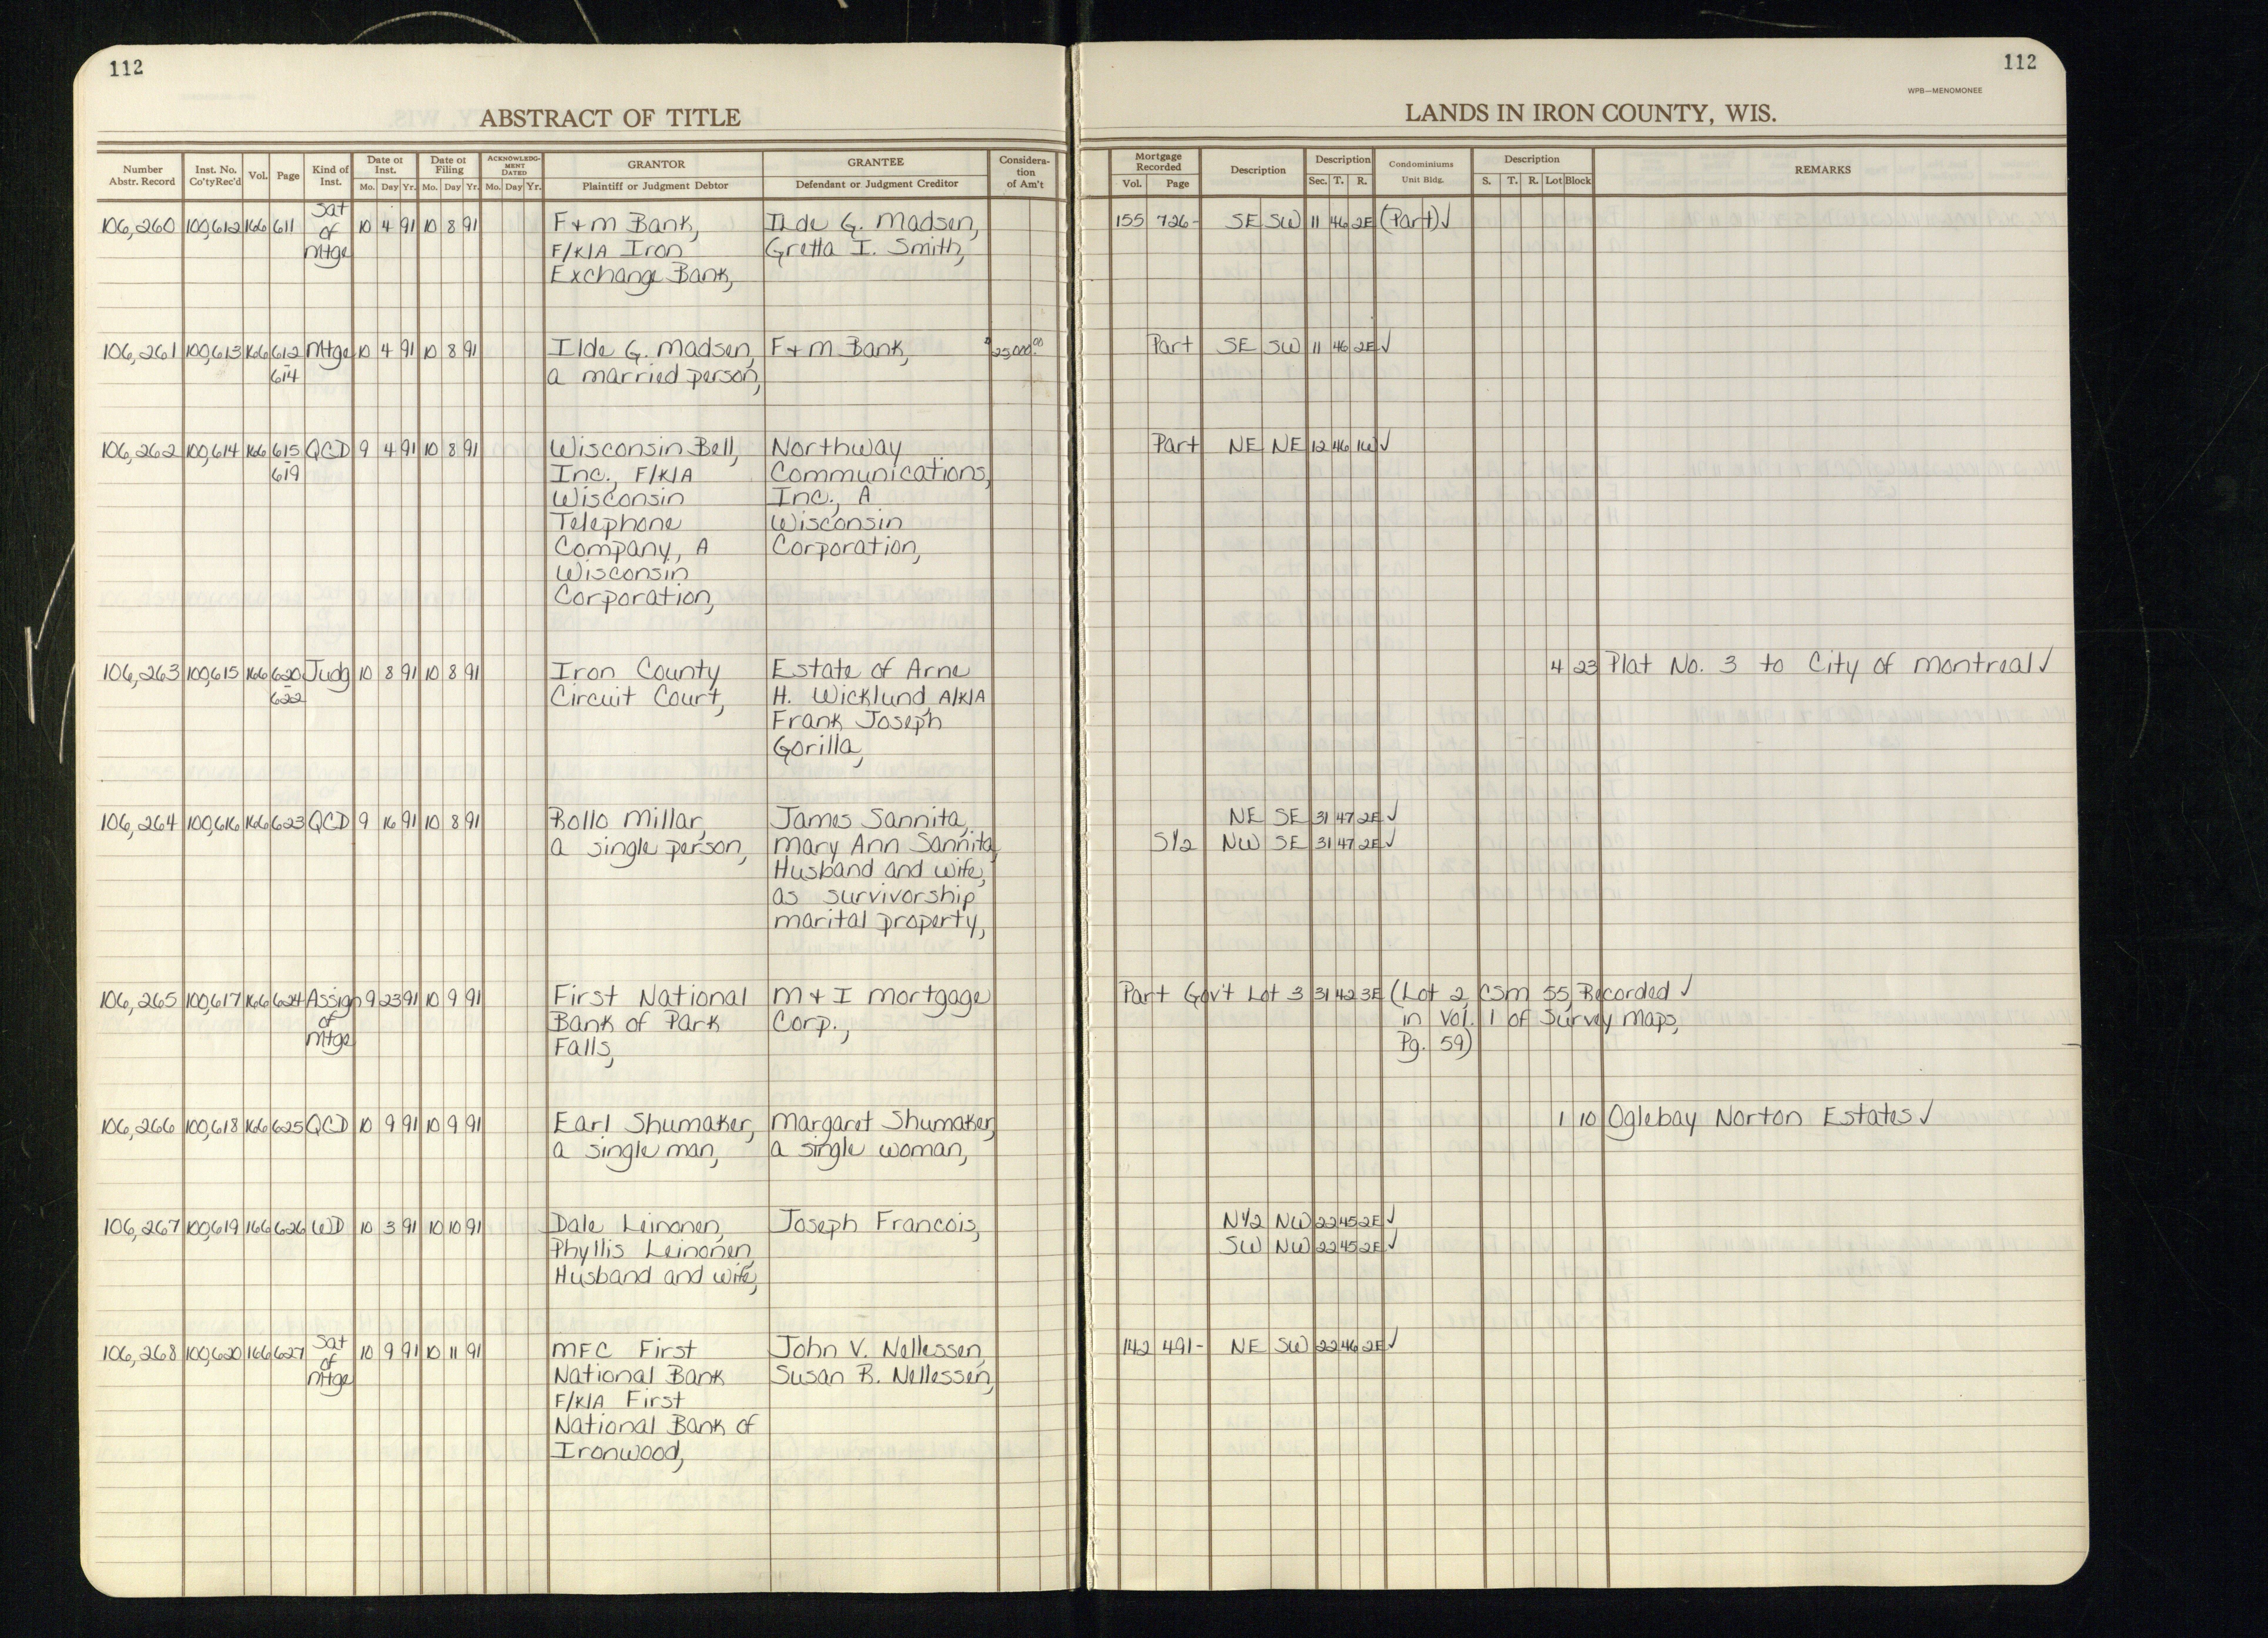 112
112
WPB—MENOMONEE
ABSTRACT OF TITLE
LANDS IN IRON COUNTY, WIS.
Number Abstr. Record | Inst. No. Co'tyRec'd | Vol. | Page | Kind of Inst. | Date of Inst. Mo. Day Yr. | Date of Filing Mo. Day Yr. | ACKNOWLEDGMENT DATED Mo. Day Yr. | GRANTOR Plaintiff or Judgment Debtor | GRANTEE Defendant or Judgment Creditor | Consideration of Am't | Mortgage Recorded Vol. Page | Description | Description Sec. T. R. | Condominiums Unit Bldg. | Description S. T. R. Lot Block | REMARKS
106,260 100,612 166 611 Sat 10 4 91 10 8 91 F+M Bank, Ilde G. Madsen, 155 726- SE SW 11 46 2E (Part) ✓
of F/K/A Iron Gretta I. Smith,
Mtge Exchange Bank,
106,261 100,613 166 612 Mtge 10 4 91 10 8 91 Ilde G. Madsen, F+M Bank, $25,000.00 Part SE SW 11 46 2E ✓
- 614 a married person,
106,262 100,614 166 615 QCD 9 4 91 10 8 91 Wisconsin Bell, Northway Part NE NE 12 46 1W ✓
- 619 Inc., F/K/A Communications,
Wisconsin Inc., A
Telephone Wisconsin
Company, A Corporation,
Wisconsin
Corporation,
106,263 100,615 166 620 Judg 10 8 91 10 8 91 Iron County Estate of Arne 4 23 Plat No. 3 to City of Montreal ✓
- 622 Circuit Court, H. Wicklund, A/K/A
Frank Joseph
Gorilla,
106,264 100,616 166 623 QCD 9 16 91 10 8 91 Rollo Millar, James Sannita, NE SE 31 47 2E ✓
a single person, Mary Ann Sannita, S1/2 NW SE 31 47 2E ✓
Husband and wife,
as survivorship
marital property,
106,265 100,617 166 624 Assign 9 23 91 10 9 91 First National M+I Mortgage Part Gov't Lot 3 31 42 3E (Lot 2, CSM 55, Recorded ✓
of Bank of Park Corp., in Vol. 1 of Survey Maps,
Mtge Falls, Pg. 59)
106,266 100,618 166 625 QCD 10 9 91 10 9 91 Earl Shumaker, Margaret Shumaker, 1 10 Oglebay Norton Estates ✓
a single man, a single woman,
106,267 100,619 166 626 WD 10 3 91 10 10 91 Dale Leinonen, Joseph Francois, N1/2 NW 22 45 2E ✓
Phyllis Leinonen, SW NW 22 45 2E ✓
Husband and wife,
106,268 100,620 166 627 Sat 10 9 91 10 11 91 MFC First John V. Nellessen, 142 491- NE SW 22 46 2E ✓
of National Bank Susan R. Nellessen,
Mtge F/K/A First
National Bank of
Ironwood,